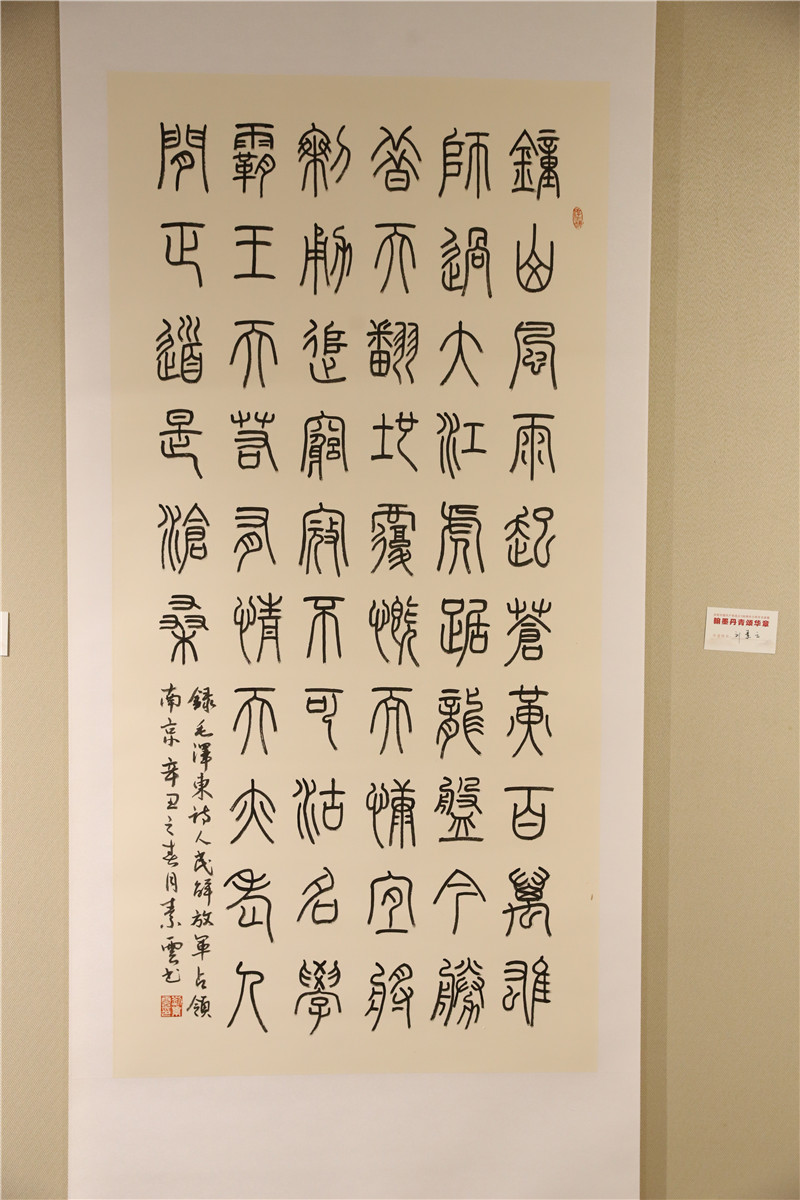 鐘山風雨起蒼黃百萬雄
師過大江虎踞龍盤今勝
昔天翻地覆慨而慷宜將
剩勇追窮寇不可沽名學
霸王天若有情天亦老人
間正道是滄桑
錄毛澤東詩人民解放軍占領
南京辛丑之春月素雲書
翰墨丹青颂华章
刘素云